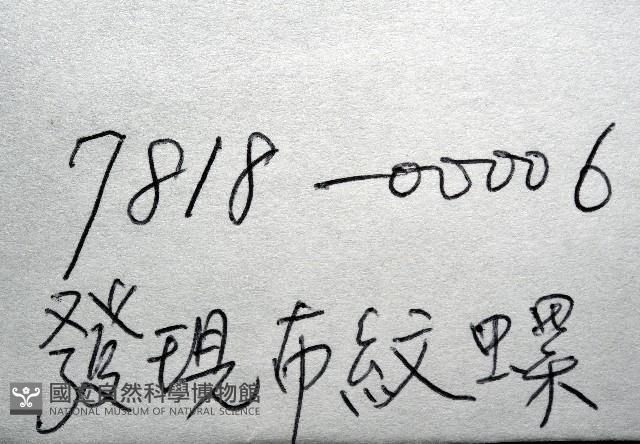 7818-00006
發現布紋螺
國立自然科學博物館
NATIONAL MUSEUM OF NATURAL SCIENCE